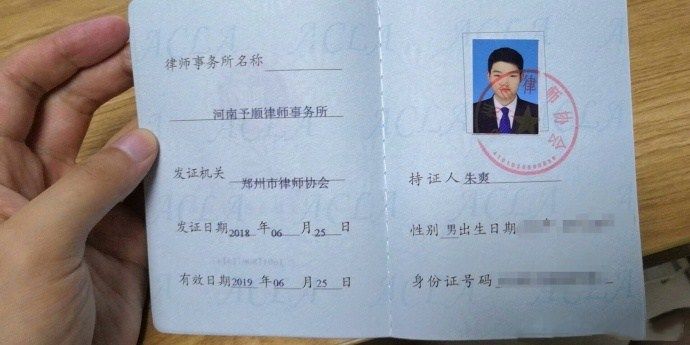 ACLA
ACLA
律师事务所名称
河南予顺律师事务所
发证机关 郑州市律师协会
发证日期2018 年 06 月 25 日
有效日期2019 年 06 月 25 日
律师协会
持证人 朱爽
性别 男 出生日期
身份证号码